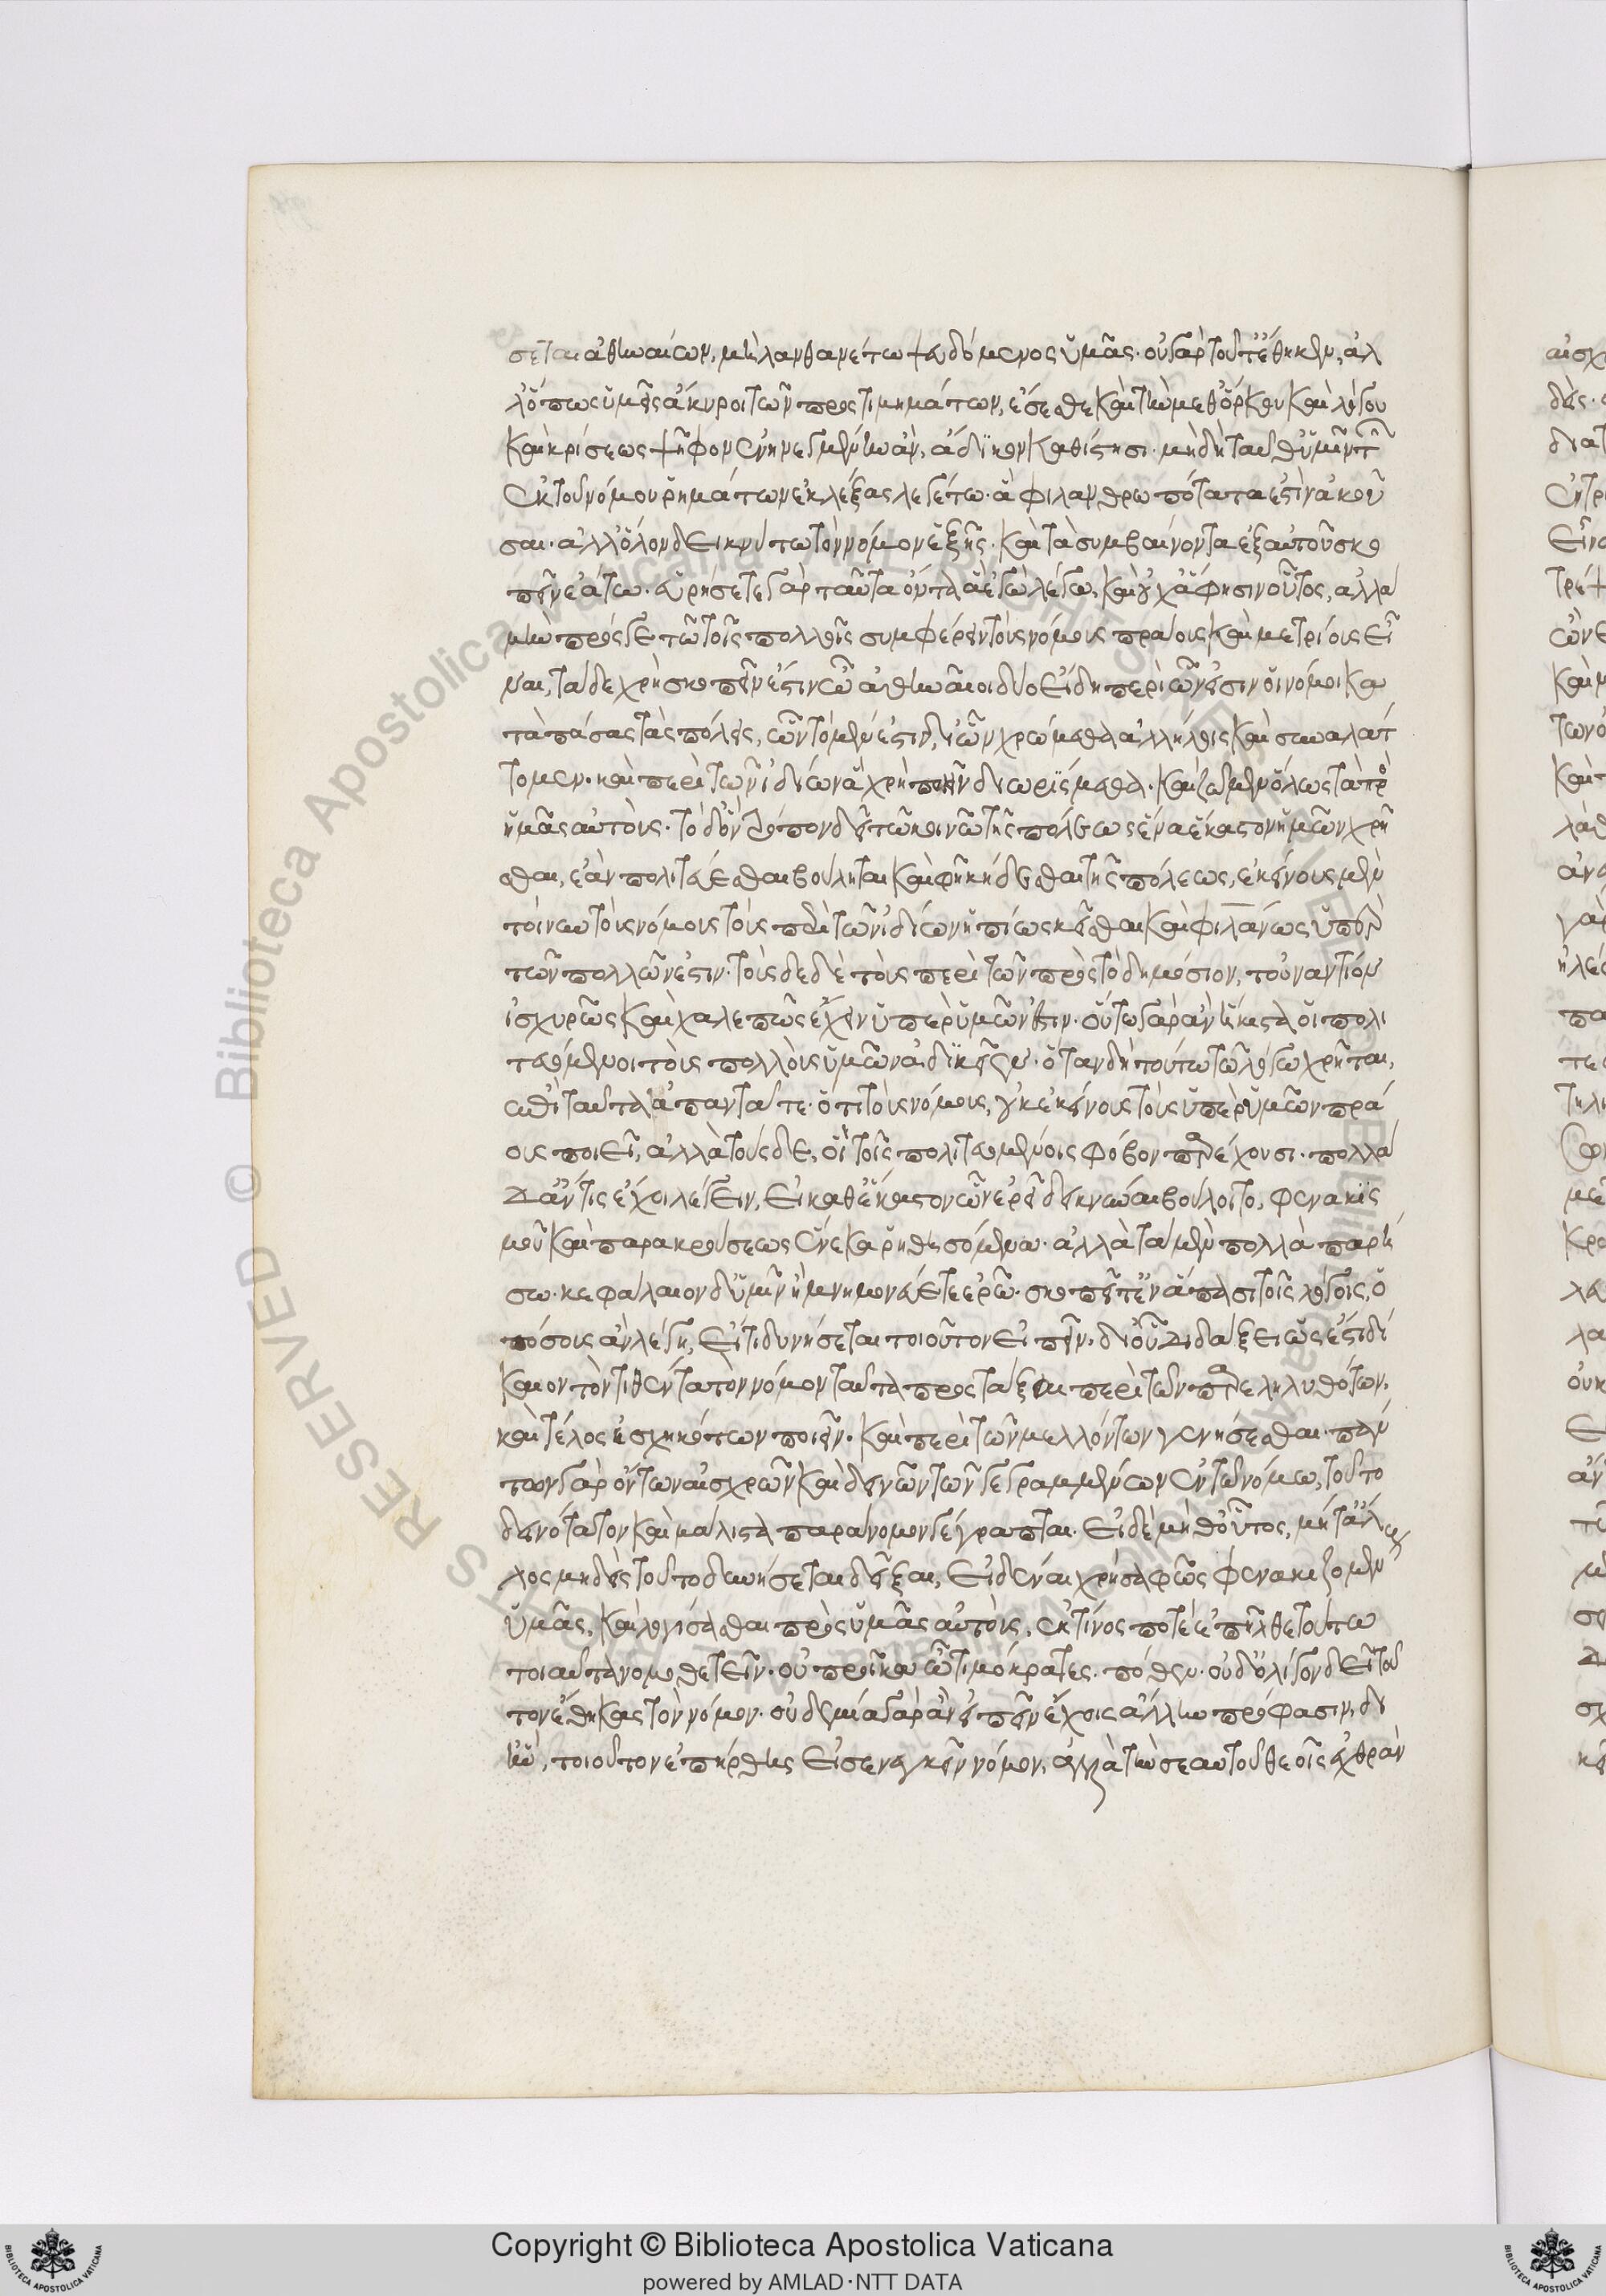 σεται ὦ ἀθηναίων, μὴ λανθανέτω ψευδόμενος ὑμᾶς· οὐ γὰρ τοῦτ' ἔθηκεν, ἀλ
λ' ὅπως ὑμεῖς ἄκυροι τῶν προστιμημάτων, ἔσεσθε καὶ τὴν μεθ' ὅρκου καὶ λόγου
καὶ κρίσεως ψῆφον ἐνηνεγμένην ἂν, ἄδικον καθίστησι. μὴ δὴ ταῦθ' ὑμῖν
ἐκ τοῦ νόμου ῥημάτων ἐκλέξας λεγέτω· ἃ φιλανθρωπότατα ἐστὶν ἀκοῦ
σαι· ἀλλ' ὅλον δεικνύτω τὸν νόμον ἑξῆς· καὶ τὰ συμβαίνοντα ἐξ αὐτοῦ σκο
πεῖν ἐάτω· εὑρήσετε γὰρ ταῦτα ὄντα ἃ ἐγὼ λέγω, καὶ οὐχ ἅ φησιν οὗτος, ἀλλὰ
μὴν πρός γε τῶ τοῖς πολλοῖς συμφέρειν τοὺς νόμους πράους καὶ μετρίους εἶ
ναι, τάδε χρὴ σκοπεῖν ἐστὶν ὦ ἀθηναῖοι δύο εἴδη περὶ ὧν εἰσιν οἱ νόμοι κα
τὰ πάσας τὰς πόλεις, ὧν τὸ μέν ἐστιν, δι' ὧν χρώμεθα ἀλλήλοις καὶ συναλάτ
τομεν· καὶ περὶ τῶν ἰδίων ἃ χρὴ ποιεῖν διωρίσμεθα· καὶ ζῶμεν ὅλως τὰ πρὸ
ἡμᾶς αὐτούς· τὸ δ' ὃν τρόπον δεῖ τῶ κοινῶ τῆς πόλεως ἕνα ἕκαστον ἡμῶν χρῆ
σθαι, ἐὰν πολιτεύεσθαι βούληται καὶ φῆ κήδεσθαι τῆς πόλεως, ἐκείνους μὲν
τοίνυν τοὺς νόμους τοὺς περὶ τῶν ἰδίων ἠπίως κεῖσθαι καὶ φιλανώς ὑπὲρ
τῶν πολλῶν ἐστιν· τοὺς δὲ δὲ τοὺς περὶ τῶν πρὸς τὸ δημόσιον, τοὐναντίον
ἰσχυρῶς καὶ χαλεπῶς ἔχειν ὑπὲρ ὑμῶν ἐστιν· οὕτω γὰρ ἂν ἥκιστα οἱ πολι
τευόμενοι τοὺς πολλοὺς ὑμῶν ἀδικεῖεν· ὅταν δὴ τούτω τῶ λόγω χρῆται,
ἐπὶ ταῦτα ἀπαντᾶτε· ὅτι τοὺς νόμους, οὐκ ἐκείνους τοὺς ὑπὲρ ὑμῶν πρά
ους ποιεῖ, ἀλλὰ τούσδε, οἳ τοῖς πολιτευομένοις φόβον παρέχουσι· πολλὰ
δ' ἄν τις ἔχοι λέγειν, εἰ καθ' ἕκαστον ὧν ἐρεῖ δεικνύναι βούλοιτο, φενακις
μοῦ καὶ παρακρούσεως ἕνεκα ῥηθησόμενα· ἀλλὰ τὰ μὲν πολλὰ παρή
σω· κεφάλαιον δ' ὑμῖν ἢ μνημονεύετε ἐρῶ· σκοπεῖτ' ἐν ἅπασι τοῖς λόγοις, ὁ
πόσους ἂν λέγη, εἴ τι δυνήσεται τοιοῦτον εἰπεῖν, δι' οὗ διδάξει ὥς ἐστι δί
καιον τὸν τιθέντα τὸν νόμον ταῦτα προστάξαι περὶ τῶν παρεληλυθότων,
καὶ τέλος ἐσχηκότων ποιεῖν· καὶ περὶ τῶν μελλόντων γενήσεσθαι· πάν
των γὰρ ὄντων αἰσχρῶν καὶ δεινῶν τῶν γεγραμμένων ἐν τῶ νόμω, τοῦτο
δεινότατον καὶ μάλιστα παράνομον γέγραπται· εἰ δὲ μήθ' οὗτος, μήτ' ἄλ
λος μηδεὶς τοῦτο δυνήσεται δεῖξαι, εἰδέναι χρὴ σαφῶς φενακιζομένους
ὑμᾶς, καὶ λογίσασθαι πρὸς ὑμᾶς αὐτούς, ἐκ τίνος ποτὲ ἐπῆλθε τούτω
τοιαῦτα νομοθετεῖν· οὐ προῖκα ὦ τιμόκρατες· πόθεν· οὐδ' ὀλίγου δεῖ τοῦ
τον ἔθηκας τὸν νόμον· οὐδεμίαν γὰρ ἂν εἰπεῖν ἔχοις ἄλλην πρόφασιν, δι
ἣν, τοιοῦτον ἐπήρθης εἰσενεγκεῖν νόμον, ἀλλὰ τὴν σεαυτοῦ θεοῖς ἐχθρὰν
© Biblioteca Apostolica Vaticana
Copyright © Biblioteca Apostolica Vaticana
powered by AMLAD·NTT DATA